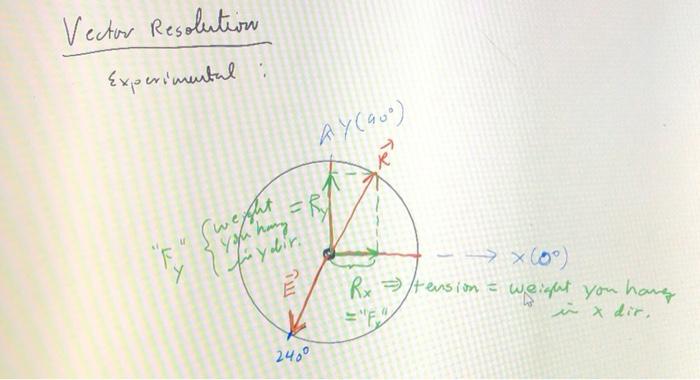 Vector Resolution
Experimental :
Y(90°)
R
weight
you hang
in y dir.
= Ry
"Fy"
E
X(0°)
Rx ⇒ tension = weight you hang
in x dir.
= "Fx"
240°